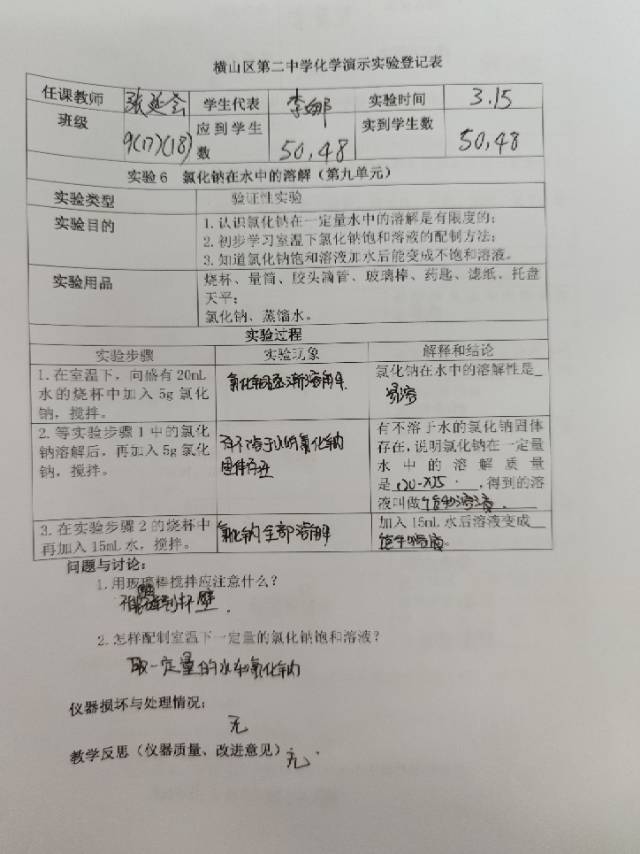 横山区第二中学化学演示实验登记表
任课教师 学生代表 李娜 实验时间 3.15
班级 9(17)(18) 应到学生数 50,48 实到学生数 50,48
实验6 氯化钠在水中的溶解（第九单元）
实验类型 验证性实验
实验目的 1.认识氯化钠在一定量水中的溶解是有限度的；
2.初步学习室温下氯化钠饱和溶液的配制方法；
3.知道氯化钠饱和溶液加水后能变成不饱和溶液。
实验用品 烧杯、量筒、胶头滴管、玻璃棒、药匙、滤纸、托盘
天平；
氯化钠、蒸馏水。
实验过程
实验步骤 实验现象 解释和结论
1.在室温下，向盛有20mL
水的烧杯中加入5g氯化
钠，搅拌。
氯化钠逐渐溶解
氯化钠在水中的溶解性是
易溶
2.等实验步骤1中的氯化
钠溶解后，再加入5g氯化
钠，搅拌。
有不溶于水的氯化钠
固体存在
有不溶于水的氯化钠固体
存在，说明氯化钠在一定量
水中的溶解质量
是 ，得到的溶
液叫做
3.在实验步骤2的烧杯中
再加入15mL水，搅拌。
氯化钠全部溶解
加入15mL水后溶液变成
。
问题与讨论：
1.用玻璃棒搅拌应注意什么？
到杯壁.
2.怎样配制室温下一定量的氯化钠饱和溶液？
取一定量的水和氯化钠
仪器损坏与处理情况：
无
教学反思（仪器质量、改进意见） 无.